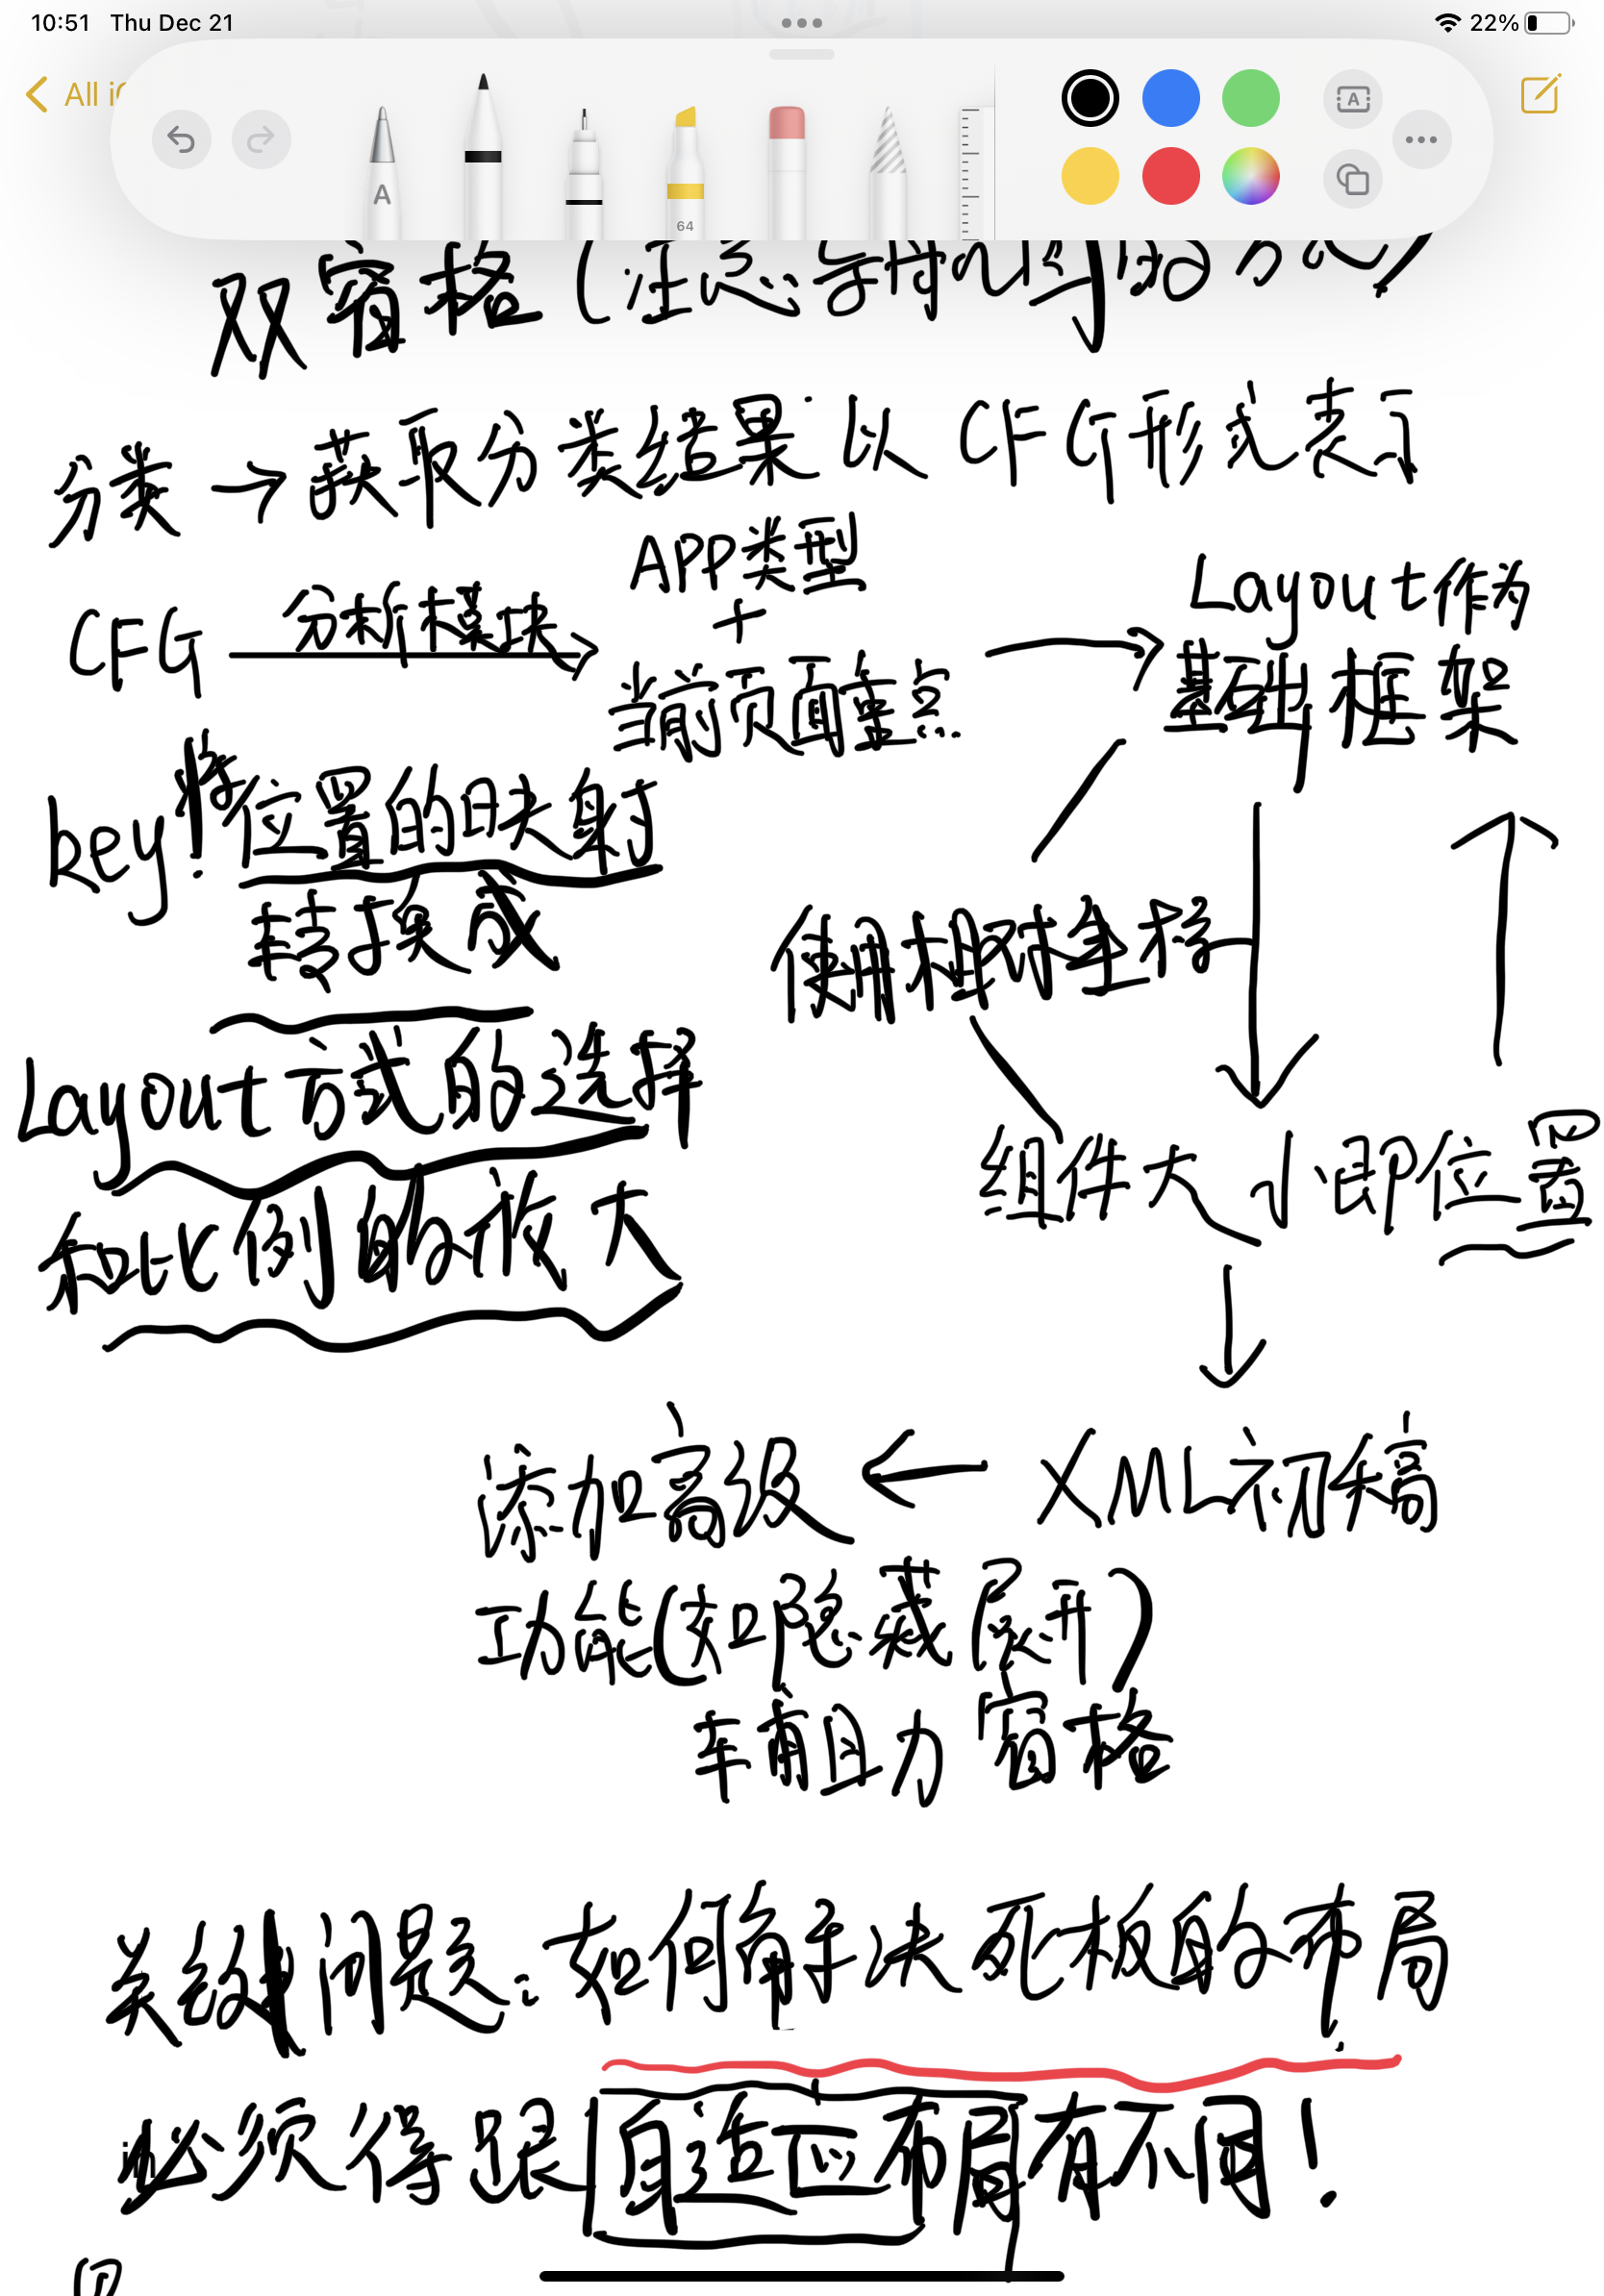 10:51 Thu Dec 21
22%
All
A
64
A
双窗格(注意
分类→获取分类结果以CFG形式表示
APP类型
+
当前页面重点
CFG 分析模块 →
Layout作为
基础框架
key! 将位置的映射
转换成
Layout方式的选择
和比例的放大
使用相对坐标
组件大小即位置
XML初稿
添加高级
功能(如隐藏展开)
辅助窗格
关键问题:如何解决死板的布局
必须得跟自适应布局有不同!